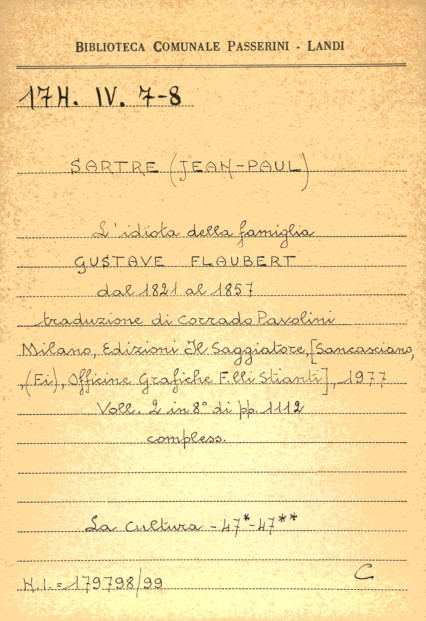 BIBLIOTECA COMUNALE PASSERINI - LANDI
17H. IV. 7-8
SARTRE (JEAN-PAUL)
L'idiota della famiglia
GUSTAVE FLAUBERT
dal 1821 al 1857
traduzione di Corrado Pavolini
Milano, Edizioni Il Saggiatore, [Sancasciano,
(Fi), Officine Grafiche F.lli Stianti], 1977
Voll. 2 in 8° di pp. 1112
compless.
La cultura - 47*-47**
N.I. = 179798/99
C